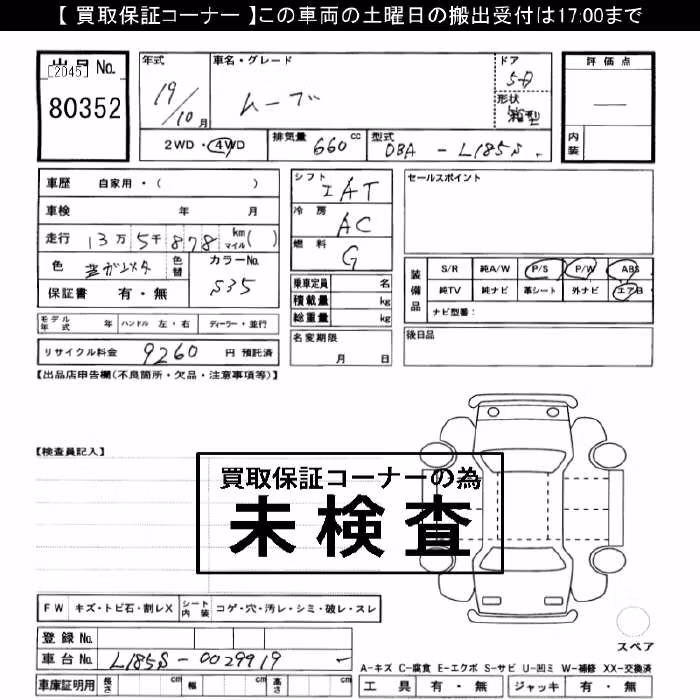 【 買取保証コーナー 】この車両の土曜日の搬出受付は17:00まで
出品 No.
[2045]
80352
年式
19/10月
車名・グレード
ムーブ
ドア
5D
形状
箱型
評価点
内装
2WD・4WD
排気量 660cc
型式 DBA - L185S
車歴 自家用・( )
車検 年 月
走行 13万5千878 km マイル( )
色
色替
カラーNo.
S35
保証書 有・無
モデル年式 年 ハンドル 左・右 ディーラー・並行
リサイクル料金 9260 円 預託済
シフト IAT
冷房 AC
燃料 G
乗車定員 名
積載量 kg
総重量 kg
名変期限
月 日
セールスポイント
装備品
S/R 純A/W P/S P/W ABS
純TV 純ナビ 革シート 外ナビ エアB
ナビ型番:
後日品
【出品店申告欄(不良箇所・欠品・注意事項等)】
【検査員記入】
買取保証コーナーの為
未検査
FW キズ・トビ石・割レX シート内装 コゲ・穴・汚レ・シミ・破レ・スレ
スペア
登録 No.
車台 No. L185S-0029919
車庫証明用 長さ cm 幅 cm 高さ cm
A-キズ C-腐食 E-エクボ S-サビ U-凹ミ W-補修 XX-交換済
工具 有・無 ジャッキ 有・無